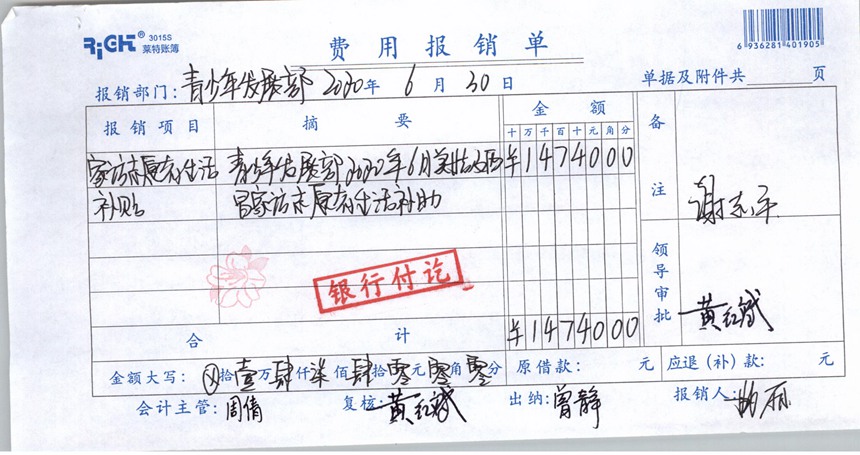 RiGHT® 3015S
莱特账簿
费用报销单
6 936281 401905
报销部门:青少年发展部 2020年 6 月 30 日 单据及附件共 页
报销项目 摘要 金额 备注
十万千百十元角分
家访志愿者生活 青少年发展部2020年6月 ¥1474000
补贴 家访志愿者生活补助
谢志平
银行付讫
领导审批 黄红斌
合计 ¥1474000
金额大写: ⊗拾壹万肆仟柒佰肆拾零元零角零分 原借款: 元 应退(补)款: 元
会计主管:周倩 复核:黄红斌 出纳:曾静 报销人: